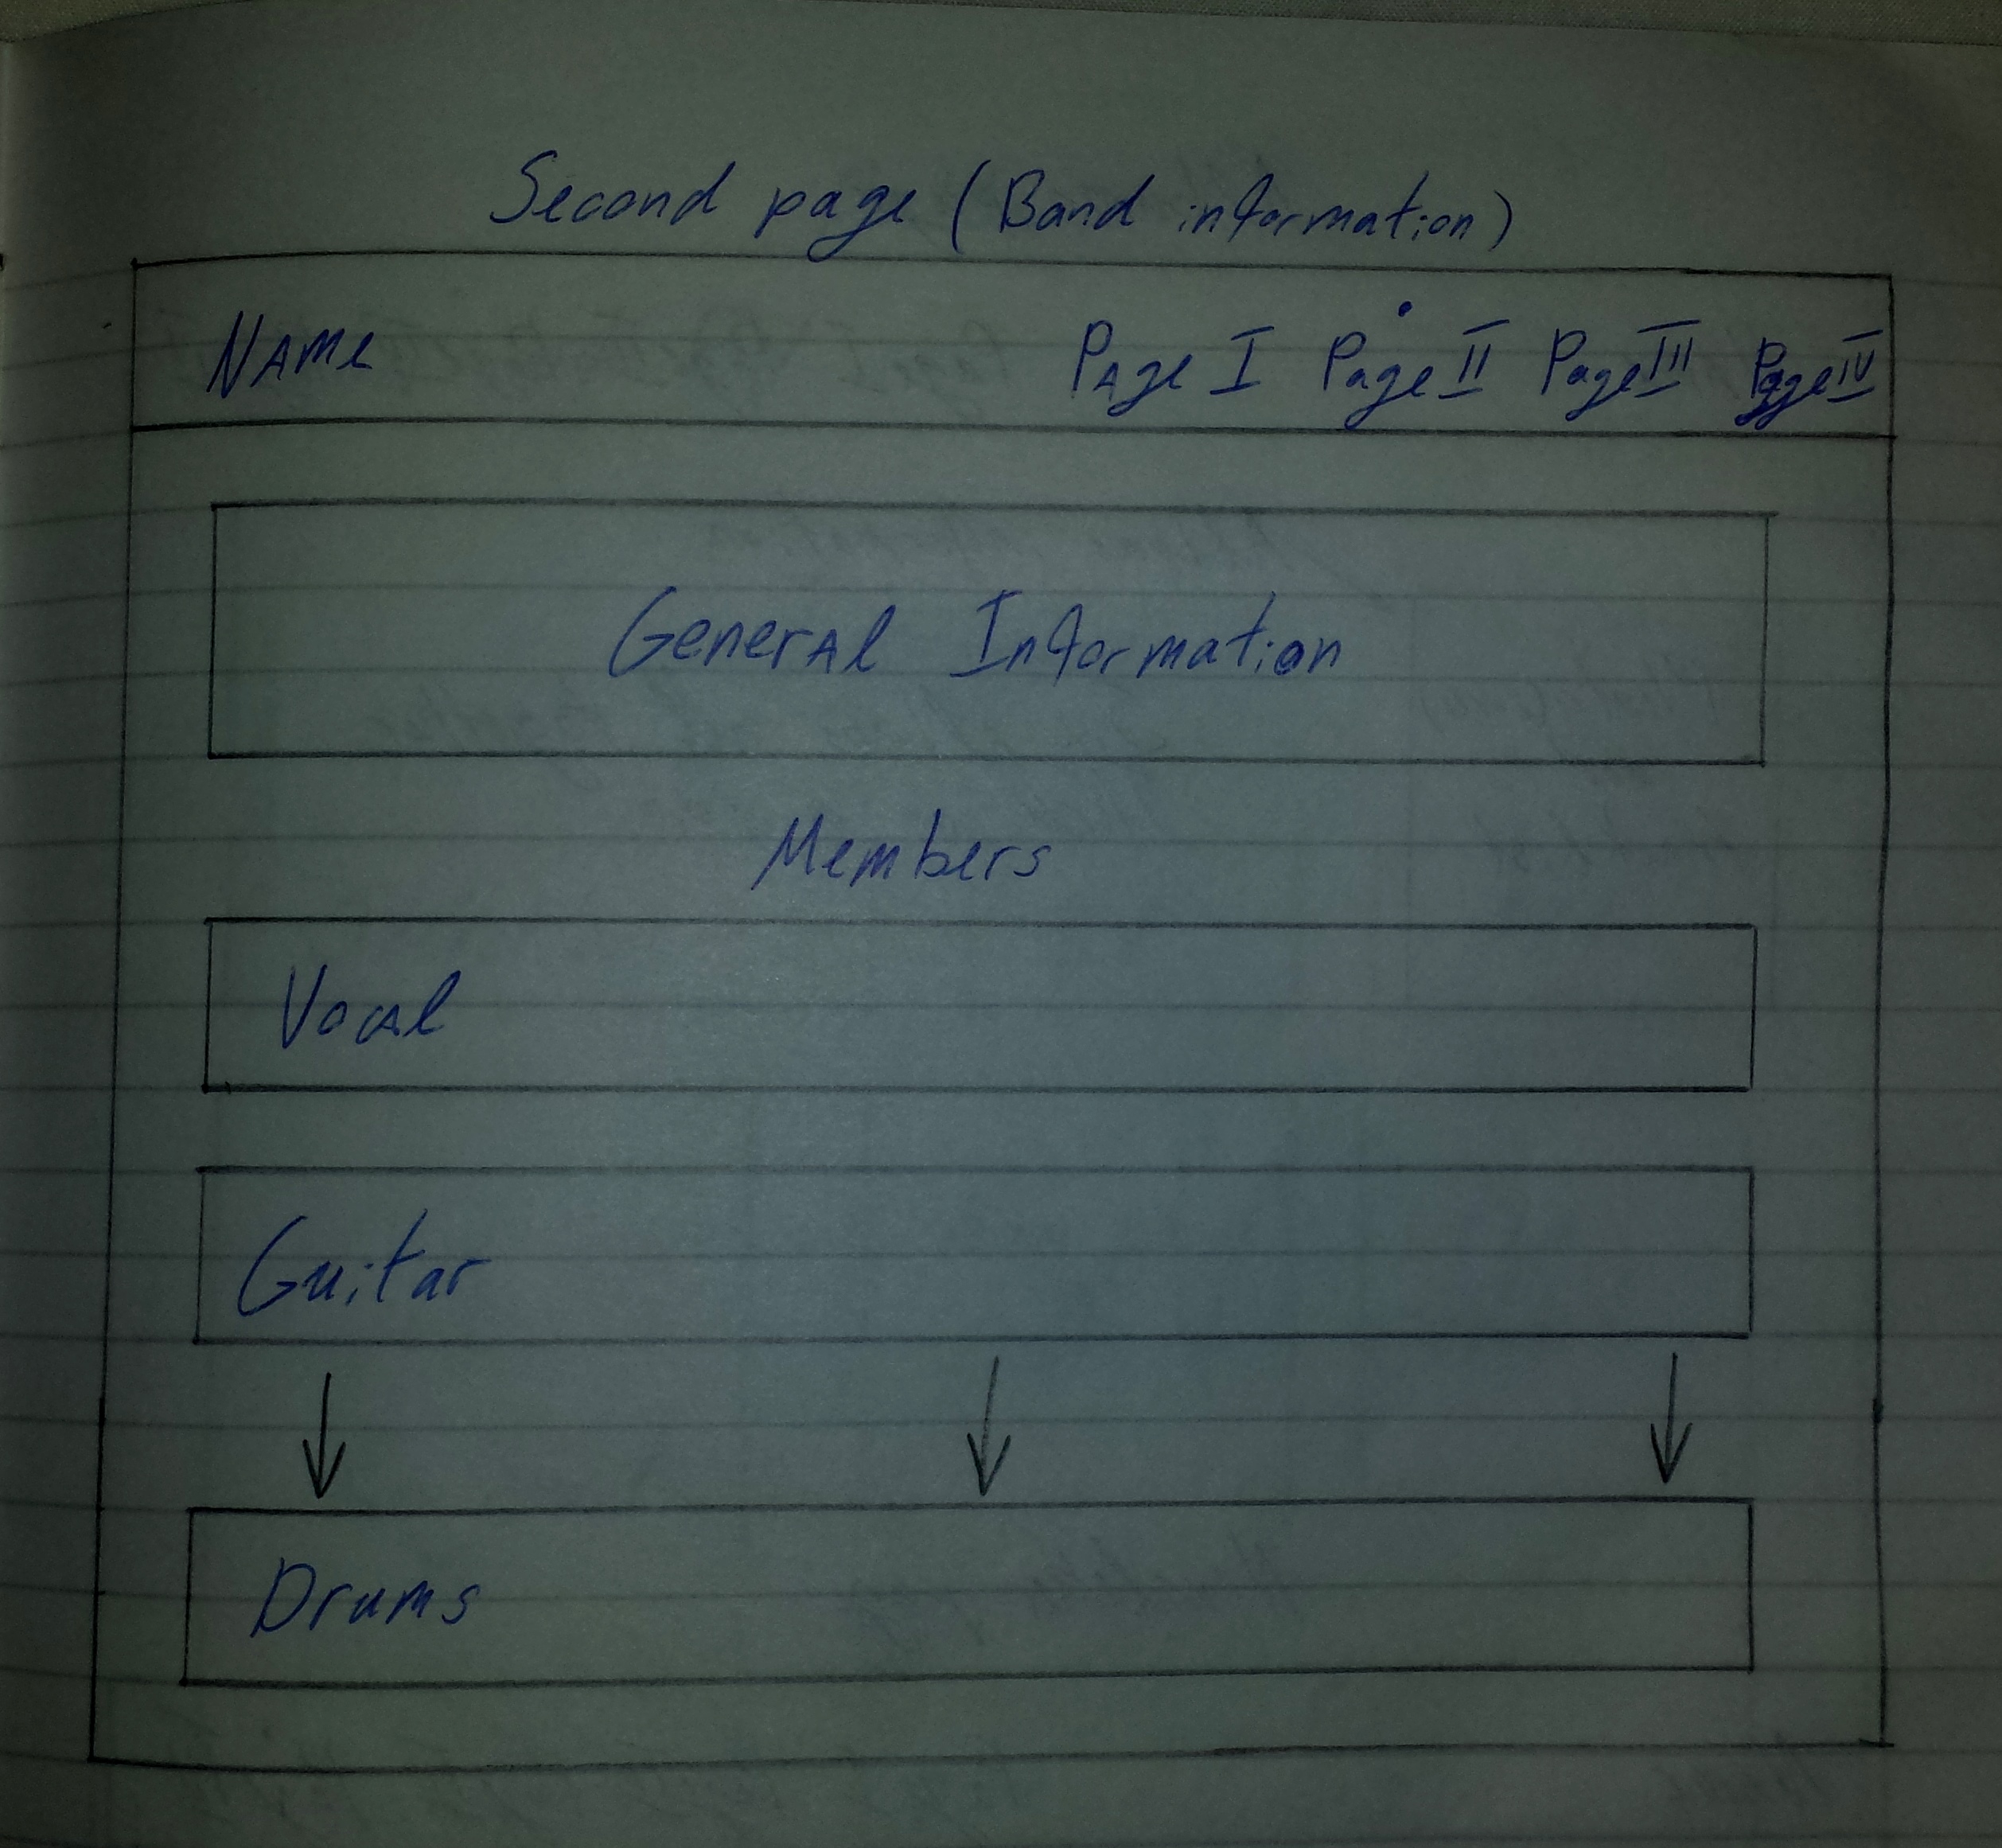 Second page (Band information)
NAMe PAge I Page II Page III Page IV
GenerAl Information
Members
Vocal
Guitar
Drums